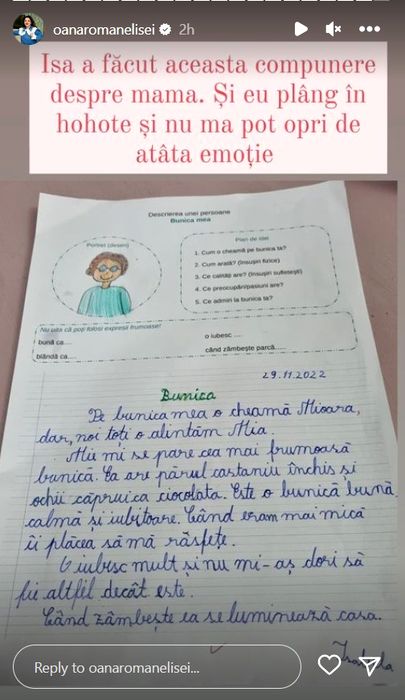 oanaromanelisei 2h
Isa a făcut aceasta compunere
despre mama. Și eu plâng în
hohote și nu ma pot opri de
atâta emoție
Descrierea unei persoane
Bunica mea
Portret (desen)
Plan de idei
1. Cum o cheamă pe bunica ta?
2. Cum arată? (însușiri fizice)
3. Ce calități are? (însușiri sufletești)
4. Ce preocupări/pasiuni are?
5. Ce admiri la bunica ta?
Nu uita că poți folosi expresii frumoase!
bună ca....
o iubesc ....
blândă ca....
când zâmbește parcă.....
29.11.2022
Bunica
Pe bunica mea o cheamă Mioara,
dar, noi toți o alintăm Mia.
Mii mi se pare cea mai frumoasă
bunică. Ea are părul castaniu închis și
ochii căprui ca ciocolata. Este o bunică bună
calmă și iubitoare. Când eram mai mică
îi plăcea să mă răsfețe.
O iubesc mult și nu mi-aș dori să
fie altfel decât este.
Când zâmbește ea se luminează casa.
Isabela
Reply to oanaromanelisei...